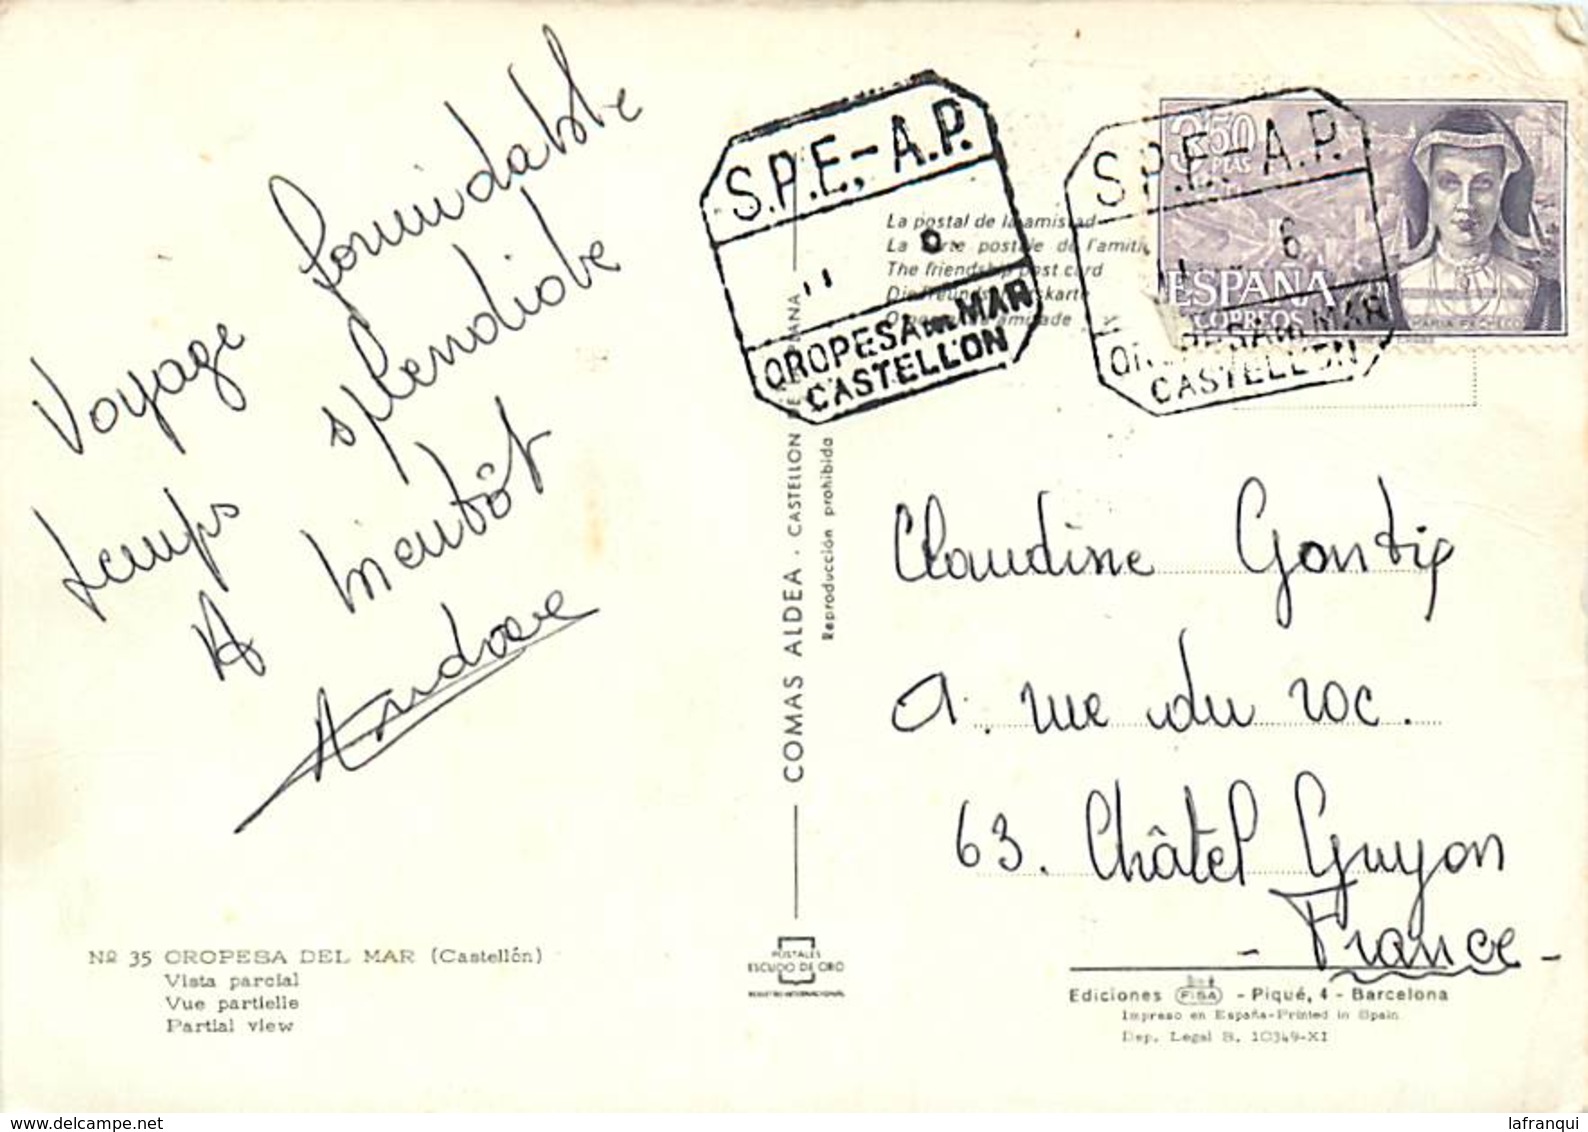 Voyage formidable
temps splendide
A bientôt
Andrée
Nº 35 OROPESA DEL MAR (Castellón)
Vista parcial
Vue partielle
Partial view
COMAS ALDEA · CASTELLON
Reproducción prohibida
POSTALES
ESCUDO DE ORO
REGISTRO INTERNACIONAL
S.P.E.-A.P.
11 6.
OROPESA DEL MAR
CASTELLON
La postal de la amistad
La carte postale de l'amitié
The friendship post card
S.P.E.-A.P.
11 6
OROPESA DEL MAR
CASTELLON
3,50
PTAS
ESPAÑA
CORREOS
MARIA PACHECO
Claudine
rue du roc.
63. Châtel Guyon
- France -
Ediciones FISA - Piqué, 4 - Barcelona
Impreso en España-Printed in Spain
Dep. Legal B. 10349-XI
delcampe.net
lafranqui